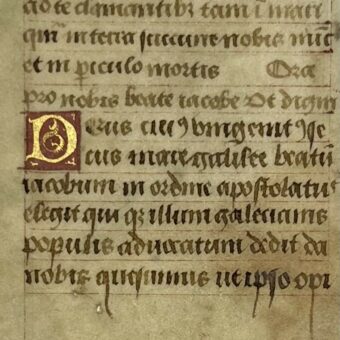 ad te clamantibus tam ī mari
qm̄ in terra succurre nobis nūc
et in piculo mortis Ora
pro nobis beate iacobe Ut digni
Deus cui⁹ vnigenit⁹ Je
cus mare galilee beatū
iacobum in ordine apostolatus
elegit qui qz illum galecianis
populis aduocatum dedit da
nobis quesumus ut ipso opi